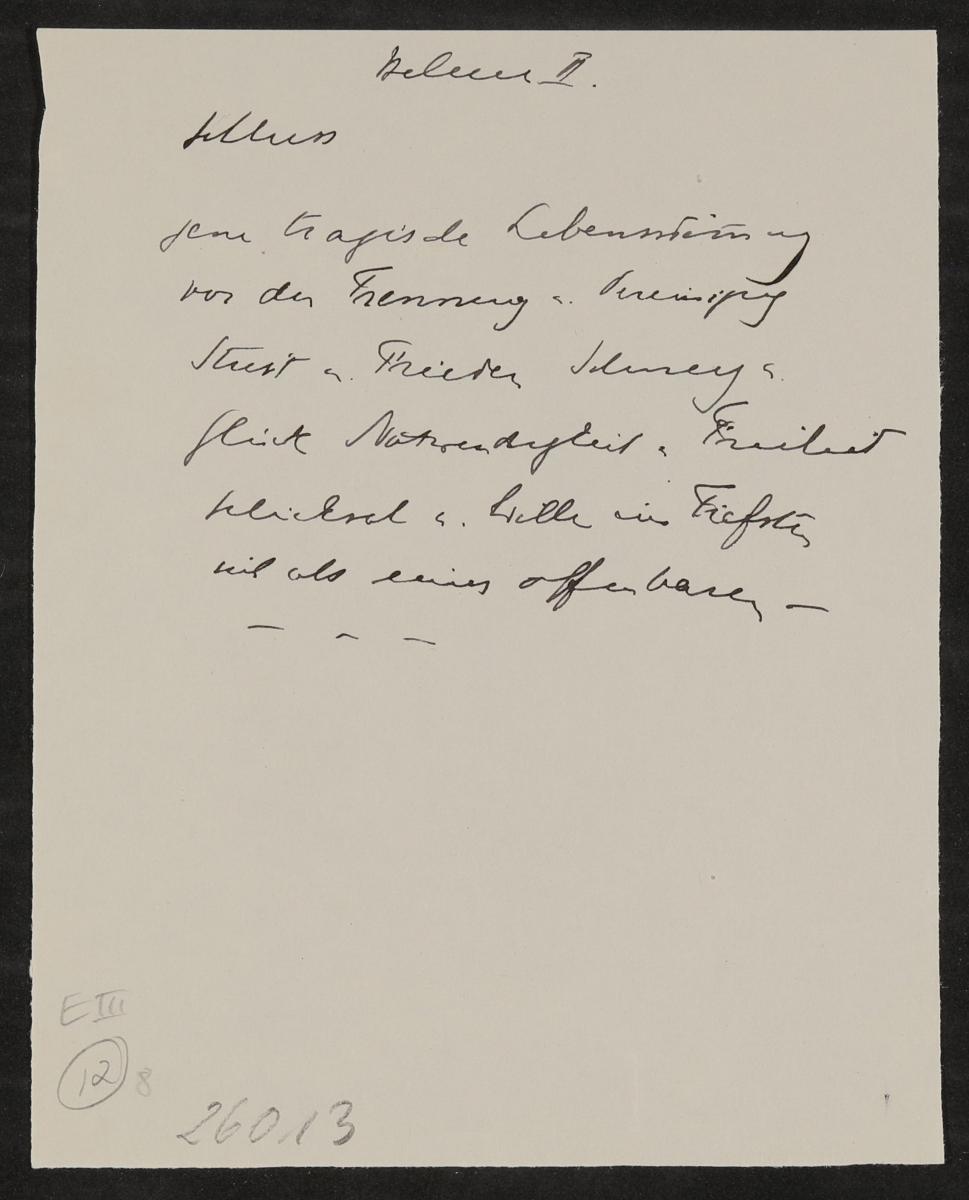 II.
Schluss
jene tragische Lebensstimmung
vor der Trennung u. Vereinigung
Streit u. Frieden Schmerz u.
Glück Notwendigkeit u. Freiheit
Schicksal u. Wille im Tiefsten
sich als eines offenbaren –
– – –
E III
12 8
260/13